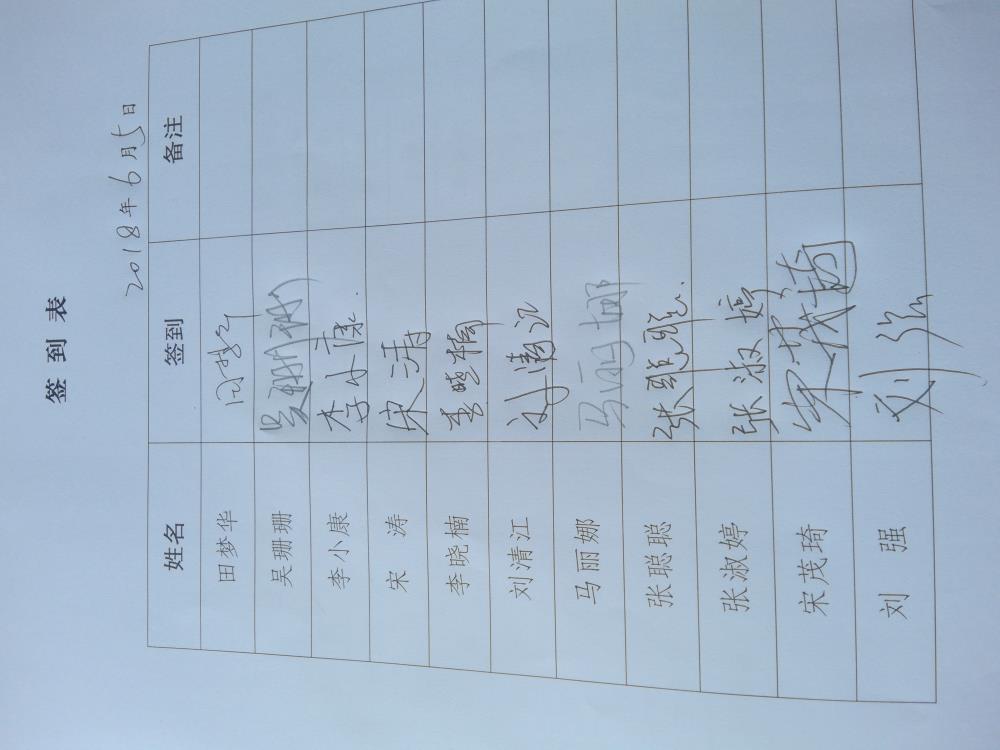 签到表
2018年6月5日
姓名 签到 备注
田梦华 田梦华
吴珊珊 吴珊珊
李小康 李小康
宋 涛 宋涛
李晓楠 李晓楠
刘清江 刘清江
马丽娜 马丽娜
张聪聪 张聪聪
张淑婷 张淑婷
宋茂琦 宋茂琦
刘 强 刘强